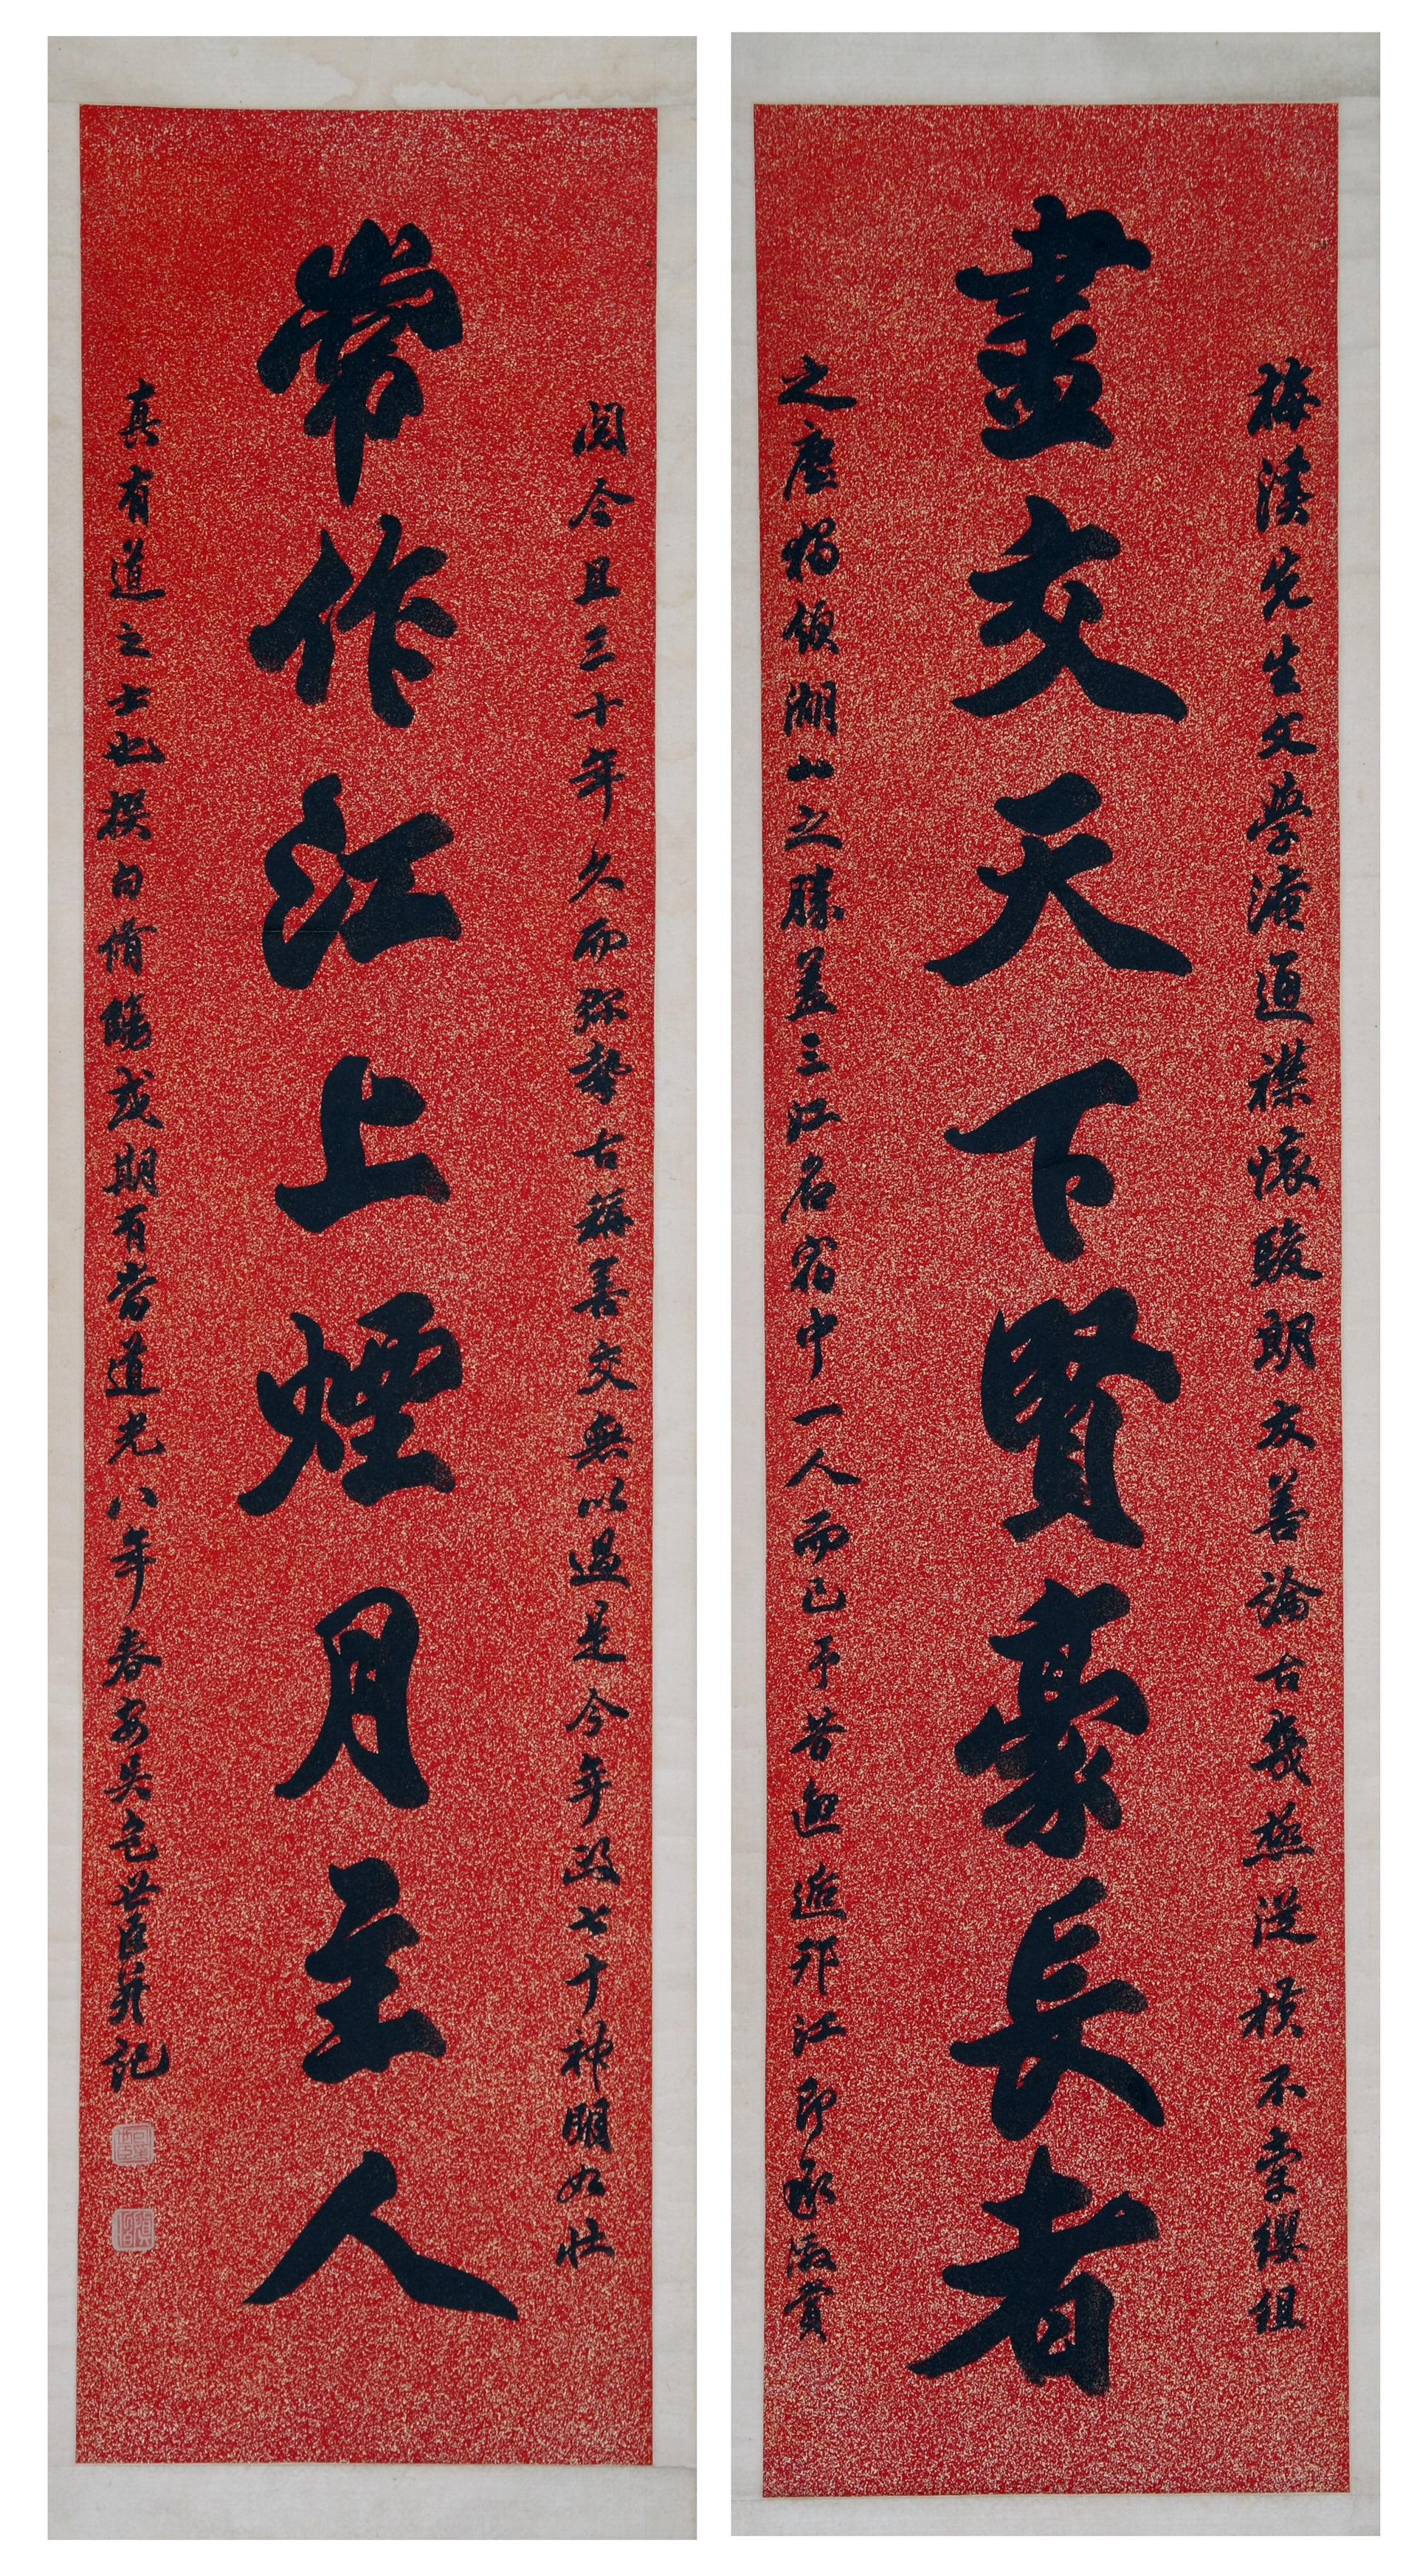 梅溪先生文學淹通襟懷駿朗友善論古幾無從橫不掌纓組
盡交天下賢豪長者
之塵獨領湖山之勝蓋三江名宿中一人而已予昔邂逅邗江即承激賞
閱今且三十年久而彌摯古稱善交無以過是今年政七十神明如壯
常作江上煙月主人
真有道之士也撰句侑觴或期有當道光八年春安吳包世臣并記